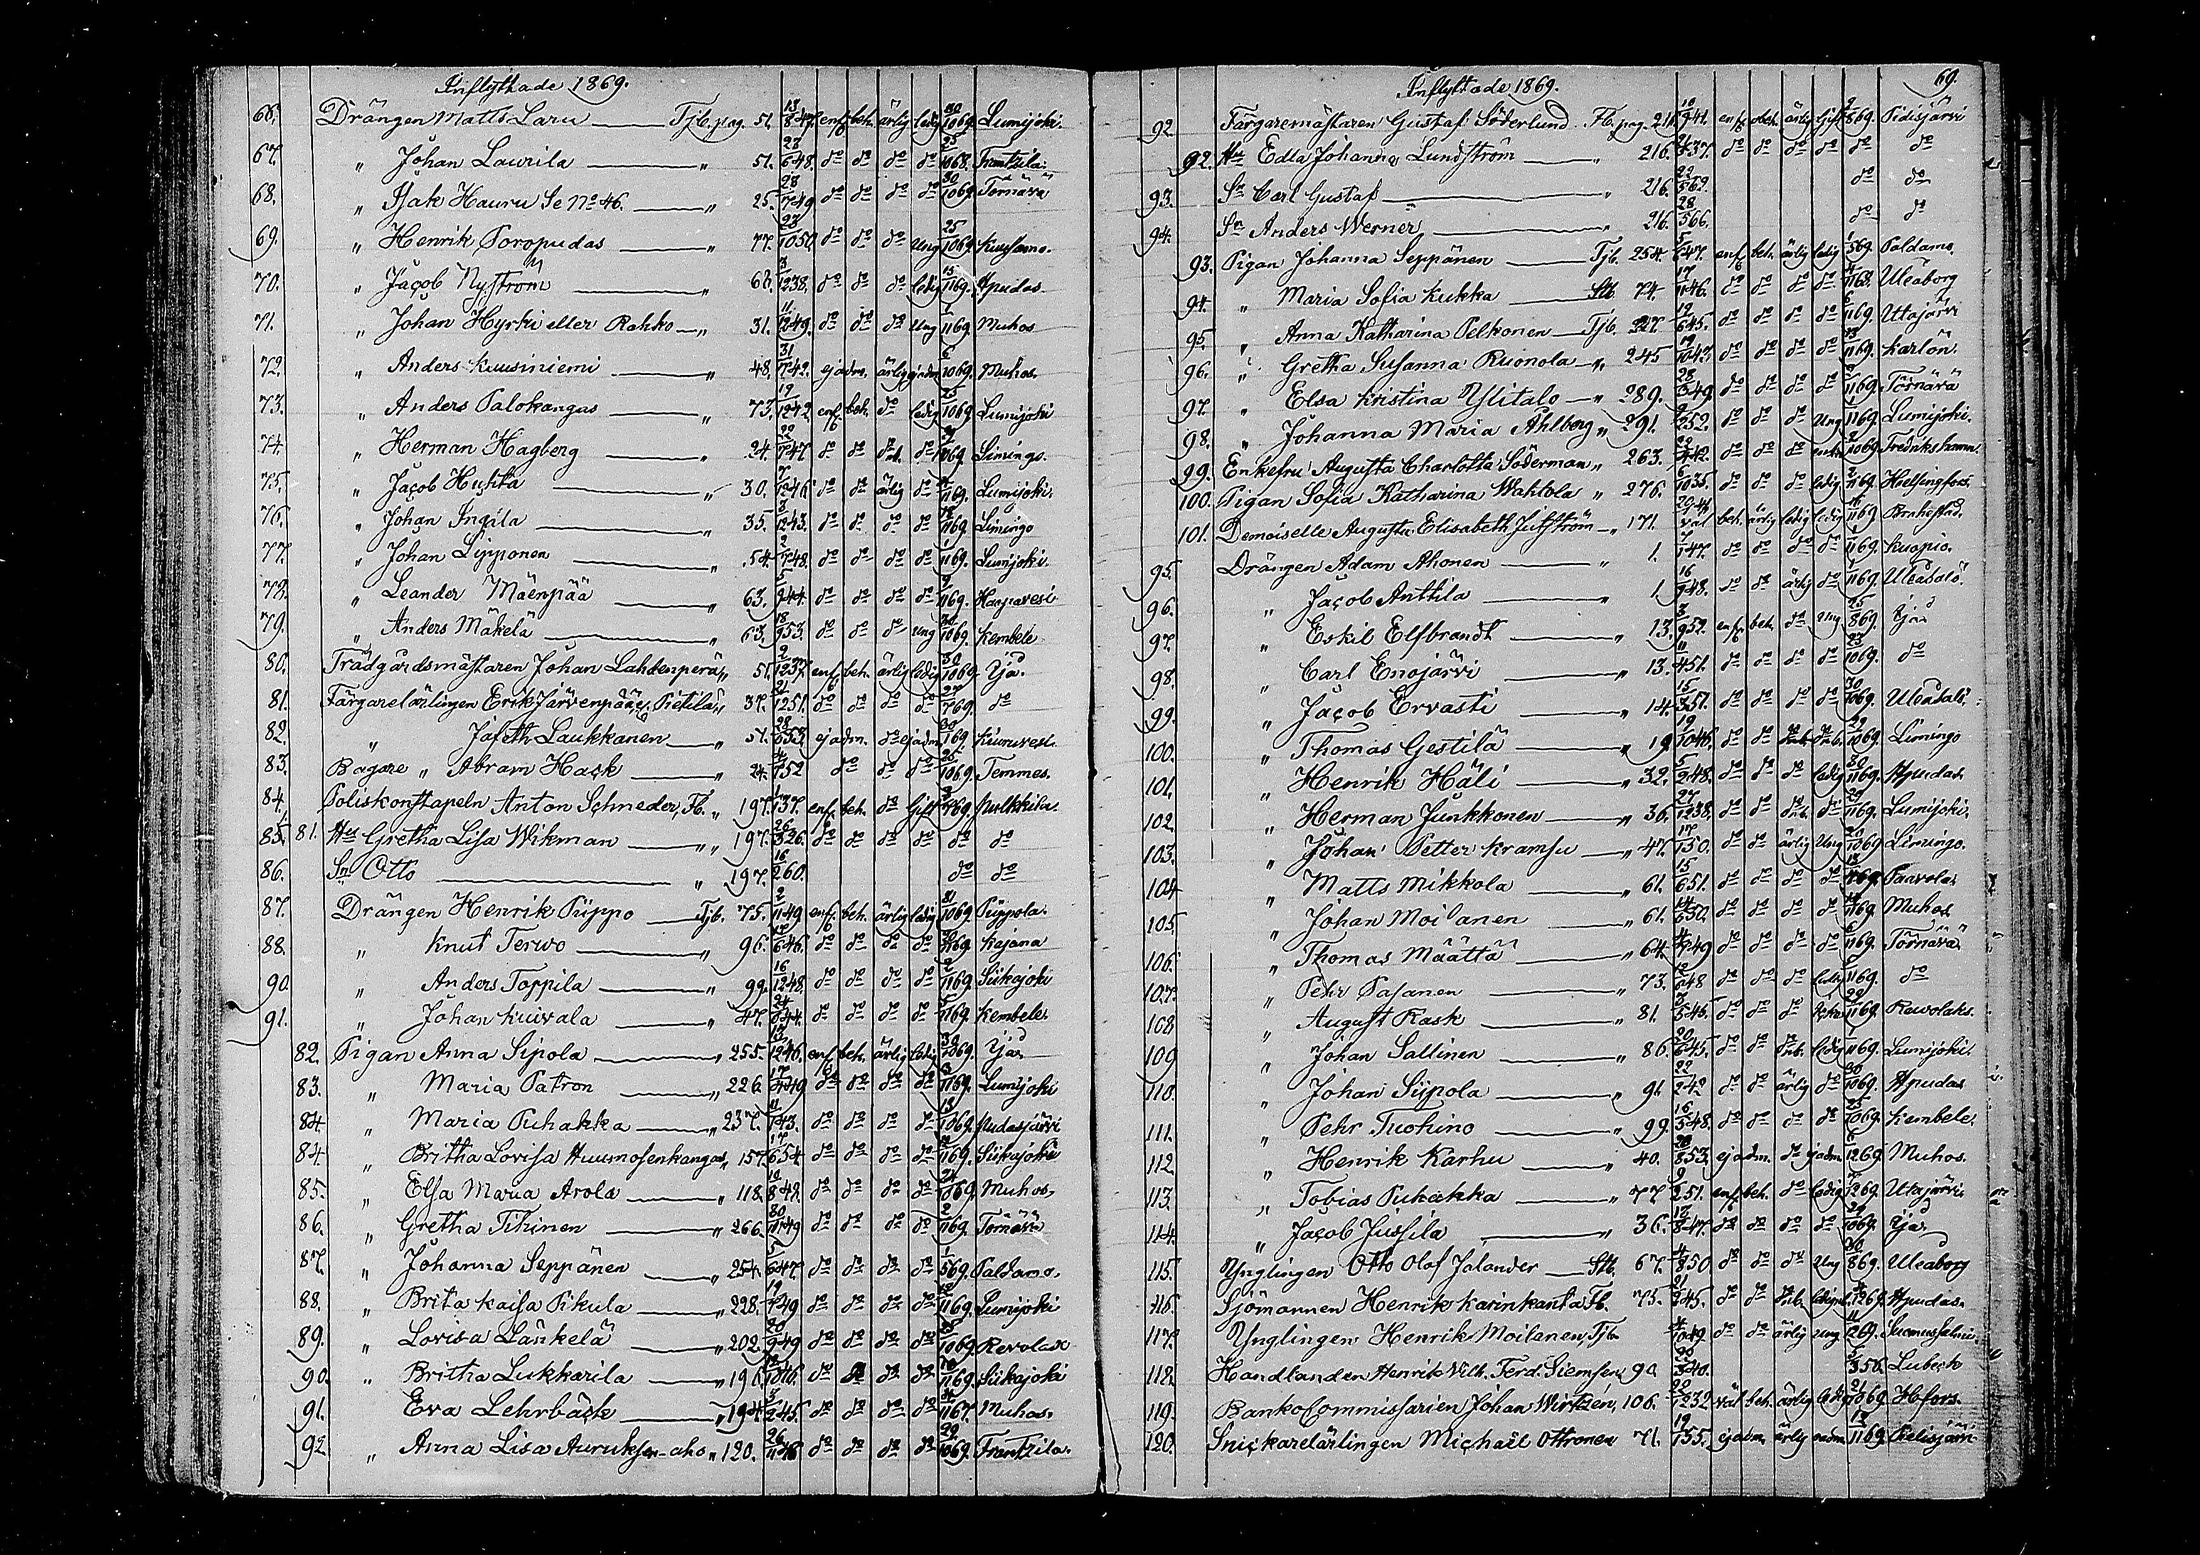 Inflyttade 1869.
66. Drängen Matts Laru Tjb. pag. 51. 13/8 47. enf. beh. ärlig ledig 30/10 69. Lumijoki.
67. " Johan Laurila " 51. 28/6 48. do do do do 25/10 68. Frantsila.
68. " Isak Hauru Se No 46. " 25. 28/7 49 do do do do 30/10 69. Törnävä
69. " Henrik Poropudas " 77. 28/10 50 do do do Ung 25/10 69. Kuusamo.
70. " Jacob Nyström " 68. 3/12 38. do do do ledig 15/11 69. Hpudas
71. " Johan Hyrki eller Rahko " 31. 11/12 49. do do do Ung 1/11 69. Muhos
72. " Anders Kuusiniemi " 48. 31/7 42. ej adm. ärlig ej adm. 6/10 69. Muhos.
73. " Anders Palokangas " 73. 19/12 42 enf. beh. do ledig 25/10 69. Lumijoki
74. " Herman Hagberg " 24. 22/7 47 do do do 10 69. Limingo.
75. " Jacob Huhta " 30. 7/12 46 do do ärlig do 11 69. Lumijoki.
76. " Johan Ingila " 35. 12 43. do do do do 12/11 69. Limingo
77. " Johan Lipponen " 54. 2/7 48. do do do do 1/11 69. Lumijoki.
78. " Leander Mäenpää " 63. 5/9 44. do do do do 2/11 69. Haapavesi
79. " Anders Mäkelä " 63. 18/9 53. do do do ung 10 69. Kembele
80. Trädgårdsmästaren Johan Lahdenperä " 51. 2/12 37. enf. beh. ärlig ledig 30/10 69. Ijo.
81. Färgarelärlingen Erik Järvenpää e. Pietilä " 37. 21/12 51. do do do do 27/7 69. do
82. " Jafeth Laukkanen " 51. 28/5 53. ej adm. do ej adm. 30/1 69. Kiuruvesi
83. Bagare " Abram Hack " 24. 4/1 52 do do do 10 69. Temmes.
84. Poliskonstapeln Anton Schneder, Fb. " 197. 1 37. enf. beh. do Gift 7 69. Pulkkila.
85. 81. Hu Gretha Lisa Wikman " 197. 26/3 26. do do do do do do
86. Sn Otto " 197. 16/2 60. do do
87. Drängen Henrik Piippo Tjb. 75. 2/11 49 enf. beh. ärlig ledig 31/10 69. Piippola.
88. " Knut Terwo " 96. 6 46. do do do do 69. Kajana
90. " Anders Toppila " 99. 16/12 48. do do do do 2/11 69. Siikajoki
91. " Johan Kuivala " 47. 24 44. do do do do 5/11 69. Kembele.
82. Pigan Anna Sipola " 255. 12 46. enf. beh. ärlig ledig 30/10 69. Ijo
83. " Maria Patron " 226. 17/4 49 do do do do 3/11 69. Lumijoki
84 " Maria Puhakka " 237. 11/1 43. do do do do 13/10 69. Pudasjärvi
84. " Britha Lovisa Huumosenkangas " 157. 17/6 54 do do do do 11 69. Siikajoki
85. " Elsa Maria Arola " 118. 10/8 48. do do do do 24/10 69. Muhos.
86. " Gretha Tihinen " 266. 30/11 49 do do do do 2/11 69. Törnävä
87. " Johanna Seppänen " 254. 5/6 47. do do do do 1/5 69. Paldamo.
88. " Brita Kaisa Pikula " 228. 19/7 49 do do do do 12/11 69. Lumijoki
89. " Lovisa Länkelä " 202. 20/9 49 do do do do 10 69. Revolax
90. " Britha Lukkarila " 196. 46. do do do do 10/11 69. Siikajoki
91. " Eva Lehrbäck " 194. 3/2 45. do do do do 11 67. Muhos.
92. " Anna Lisa Auruksen-aho " 120. 26/11 46 do do do do 29/10 69. Frantsila.
Inflyttade 1869. 69.
92. Färgaremästaren Gustaf Söderlund Fb. pag. 216. 10/9 41. enf. beh. ärlig Gift 2/8 69. Pidisjärvi
92. Hu Edla Johanna Lundström " 216. 37. do do do do do do
93. Sn Carl Gustaf " 216. 22/5 62. do do
94. Sn Anders Werner " 216. 28/5 66. do do
93. Pigan Johanna Seppänen Tjb. 254. 5/6 47. enf. beh. ärlig ledig 1/5 69. Paldamo.
94. " Maria Sofia Kukka Stb. 74. 17/11 46. do do do do 4/11 68. Uleåborg
95. " Anna Katharina Pelkonen Tjb. 227. 12/6 45. do do do do 6/11 69. Utajärvi
96. " Gretha Susanna Ruonola " 245 19/10 42. do do do do 13/11 69. Karlön.
97. " Elsa Kristina Ylitalo " 289. 28/6 49. do do do do 11 69. Törnävä
98. " Johanna Maria Ahlberg " 291. 2 52. do do do Ung 1/11 69. Lumijoki.
99. Enkefru Augusta Charlotta Söderman " 263. 22 42. do do do 2/10 69. Fredrikshamn.
100. Pigan Sofia Katharina Wahtola " 276. 6/10 35. do do do ledig 2/11 69. Helsingfors.
101. Demoiselle Augusta Elisabeth " 171. 29 44 väl beh. ärlig ledig 16/11 69 Brahestad.
95. Drängen Adam Ahonen " 1. 7/1 47. do do do do 11 69. Kuopio.
96. " Jacob Anttila " 1. 16/9 48. do do ärlig do 1/11 69. Uleåsalo.
97. " Eskil Elfbrandt " 13. 3/9 52. enf. beh. do Ung 25/8 69 Ijo
98. " Carl Enojärvi " 13. 11/4 51. do do do do 23/10 69. do
99. " Jacob Ervasti " 14. 15/3 51. do do do do 30/10 69. Uleåsalo.
100. " Thomas Gestilä " 19. 19/10 46. do do 29/10 69. Limingo
101. " Henrik Häli " 32. 5/2 48. do do do ledig 30/11 69. Hpudas.
102. " Herman Junkkonen " 36. 27/12 38. do do do 29/11 69. Lumijoki.
103. " Johan Petter Kramsu " 47. 17/1 50. do do ärlig Ung 20/10 69. Limingo.
104 " Matts Mikkola " 61. 15/6 51. do do do do 13 69. Paavola.
105. " Johan Moilanen " 61. 14/6 50. do do do do 11 69. Muhos
106. " Thomas Määttä " 64. 4/7 49 do do do do 6/11 69. Törnävä.
107. " Pehr Pasanen " 73. 12/6 48 do do do ledig 11 69. do
108 " August Rask " 81. 3/5 45. do do do 22/11 69. Rewolaks.
109 " Johan Sallinen " 86. 20/6 45. do do ledig 1/11 69. Lumijoki.
110. " Johan Siipola " 91 22/2 42 do do ärlig do 30/10 69. Hpudas
111. " Pehr Tuohino " 99. 16/3 48. do do do do 23/10 69. Kembele.
112. " Henrik Karhu " 40. 28/8 53. ej adm. do ej adm. 12 69. Muhos.
113. " Tobias Puhakka " 77 9/2 51. enf. beh. do ledig 12 69. Utajärvi
114. " Jacob Jussila " 36. 12/8 47. do do do do 29/10 69. Ijo
115. Ynglingen Otto Olof Jalander Stb. 67. 4/8 50 do do do Ung 26/8 69. Uleåborg
116. Sjömannen Henrik Karinkanta Fb. 75. 21/2 45. do do 12 69. Hpudas.
117. Ynglingen Henrik Moilanen, Tjb. 4/10 49. do do ärlig ung 11/12 69. Suomussalmi.
118. Handlanden Henrik Vilh. Ferd. Siemssen 90. 20/3 40. 3 56. Lubeck
119. BankoCommissarien Johan Wirtzén, 106. 22/12 32 väl beh. ärlig ledig 21/10 69. Hfors.
120. Snickarelärlingen Michaël Ottronen 71. 19/1 55. ej adm. ärlig 12/11 69.